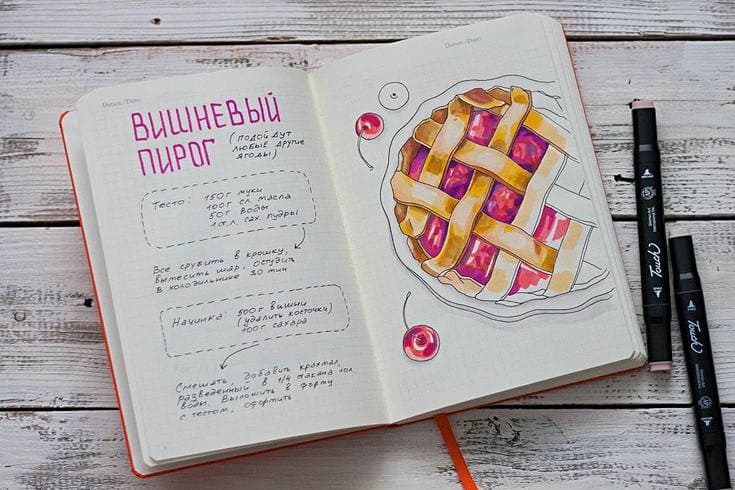 Datum / Date:
ВИШНЕВЫЙ
ПИРОГ
(подойдут
любые другие
ягоды)
Тесто: 150г муки
100г сл. масла
50г воды
1 ст.л. сах. пудры
Все срубить в крошку,
вымесить шар, остудить
в холодильнике 30 мин
Начинка: 500г вишни
(удалить косточки)
100г сахара
Смешать, добавить крахмал,
разведенный в 1/4 стакана хол.
воды. Выложить в форму
с тестом, оформить
Datum / Date:
Touch
Touch